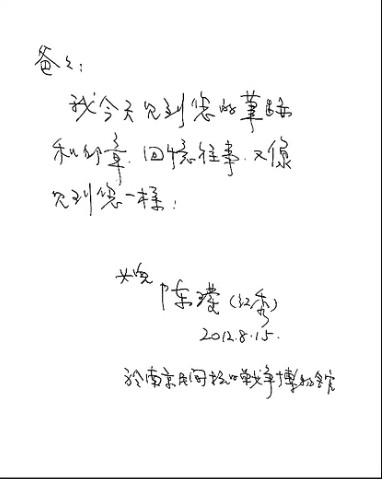 爸々：
我今天见到您的筆跡
和印章.回憶往事.又像
见到您一样：
女兒 陈(红秀)
2012.8.15.
於南京民间抗日戰争博物館